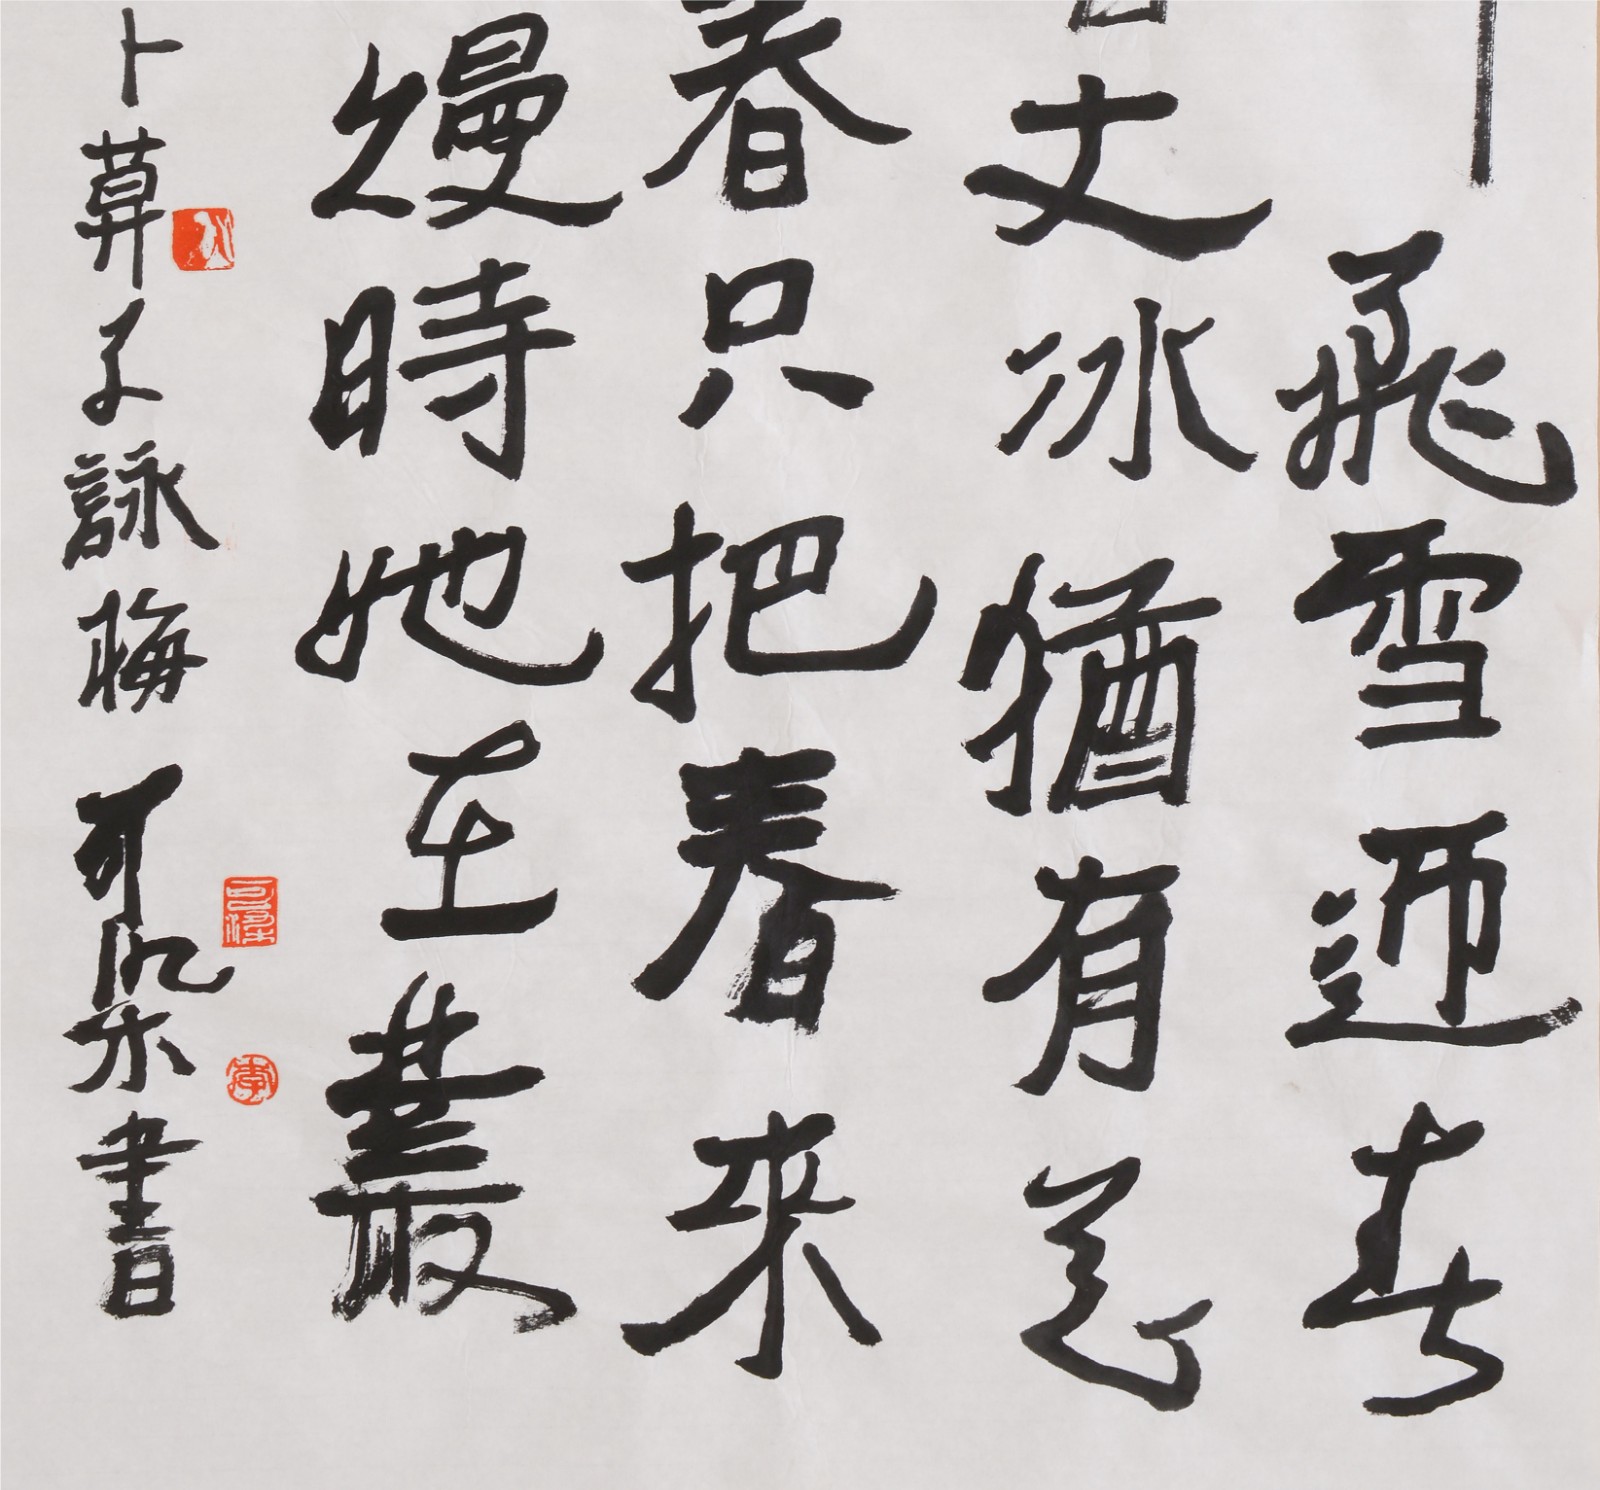 飛雪迎春
丈冰猶有花
春只把春來
熳時她在叢
卜算子詠梅 可染書
可染
李